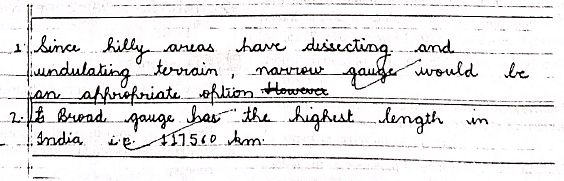 1. Since hilly areas have dissecting and
undulating terrain, narrow gauge would be
an appropriate option However
2. Broad gauge has the highest length in
India i.e. 117560 km.